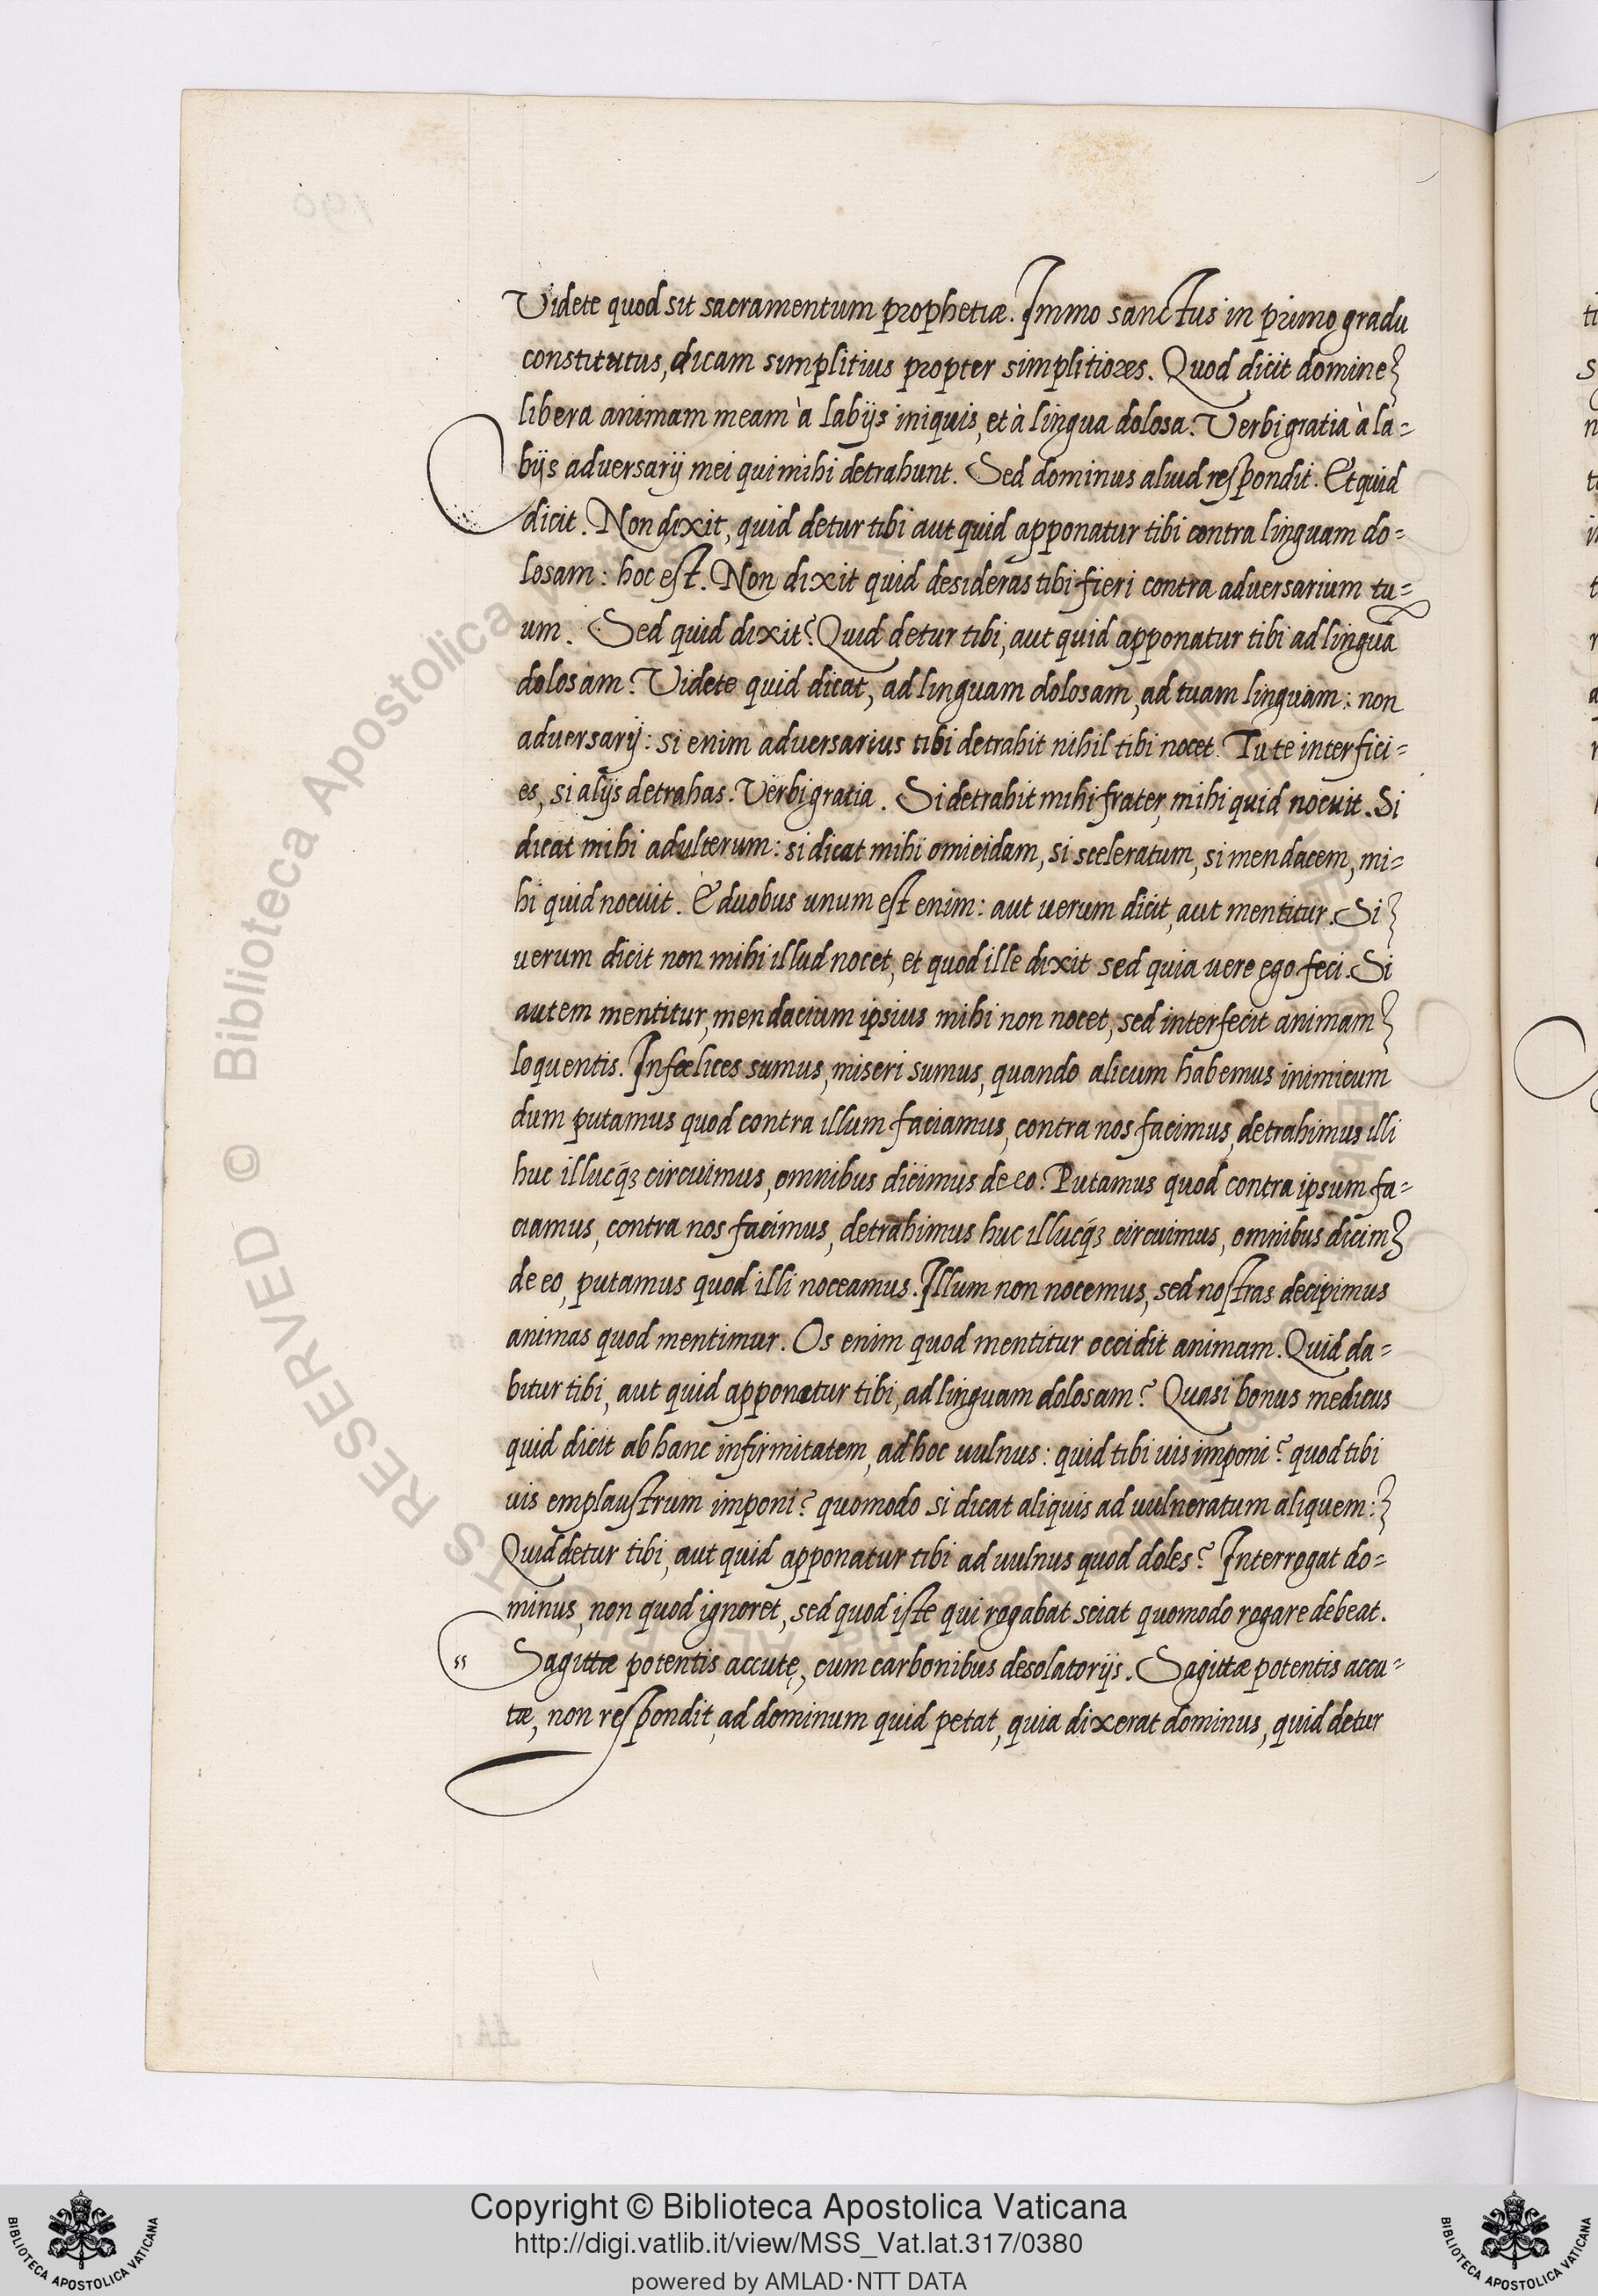 Videte quod sit sacramentum prophetiæ. Immo sanctus in primo gradu
constitutus, dicam simplitius propter simplitiores. Quod dicit domine
libera animam meam à labijs iniquis, et à lingua dolosa. Verbi gratia à la=
bijs adversarij mei qui mihi detrahunt. Sed dominus aliud respondit. Et quid
dicit. Non dixit, quid detur tibi aut quid apponatur tibi contra linguam do=
losam: hoc est. Non dixit quid desideras tibi fieri contra adversarium tu=
um. Sed quid dixit? Quid detur tibi, aut quid apponatur tibi ad linguā
dolosam? Videte quid dicat, ad linguam dolosam, ad tuam linguam: non
adversarij: si enim adversarius tibi detrahit nihil tibi nocet. Tu te interfici=
es, si alijs detrahas. Verbi gratia. Si detrahit mihi frater, mihi quid nocuit. Si
dicat mihi adulterum: si dicat mihi omicidam, si sceleratum, si mendacem, mi=
hi quid nocuit. E duobus unum est enim: aut uerum dicit, aut mentitur. Si
uerum dicit non mihi illud nocet, et quod ille dixit sed quia uere ego feci. Si
autem mentitur, mendacium ipsius mihi non nocet, sed interfecit animam
loquentis. Infælices sumus, miseri sumus, quando alicum habemus inimicum
dum putamus quod contra illum faciamus, contra nos facimus, detrahimus illi
huc illucq́ꝫ circuimus, omnibus dicimus de eo. Putamus quod contra ipsum fa=
ciamus, contra nos facimus, detrahimus huc illucq́ꝫ circuimus, omnibus dicimꝫ
de eo, putamus quod illi noceamus. Illum non nocemus, sed nostras decipimus
animas quod mentimur. Os enim quod mentitur occidit animam. Quid da=
bitur tibi, aut quid apponatur tibi, ad linguam dolosam? Quasi bonus medicus
quid dicit ab hanc infirmitatem, ad hoc uulnus: quid tibi uis imponi? quod tibi
uis emplaustrum imponi? quomodo si dicat aliquis ad uulneratum aliquem:
Quid detur tibi, aut quid apponatur tibi ad uulnus quod doles? Interrogat do=
minus, non quod ignoret, sed quod iste qui rogabat sciat quomodo rogare debeat.
" Sagittæ potentis accutę, cum carbonibus desolatorijs. Sagittæ potentis accu=
tæ, non respondit, ad dominum quid petat, quia dixerat dominus, quid detur
Copyright © Biblioteca Apostolica Vaticana
http://digi.vatlib.it/view/MSS_Vat.lat.317/0380
powered by AMLAD·NTT DATA